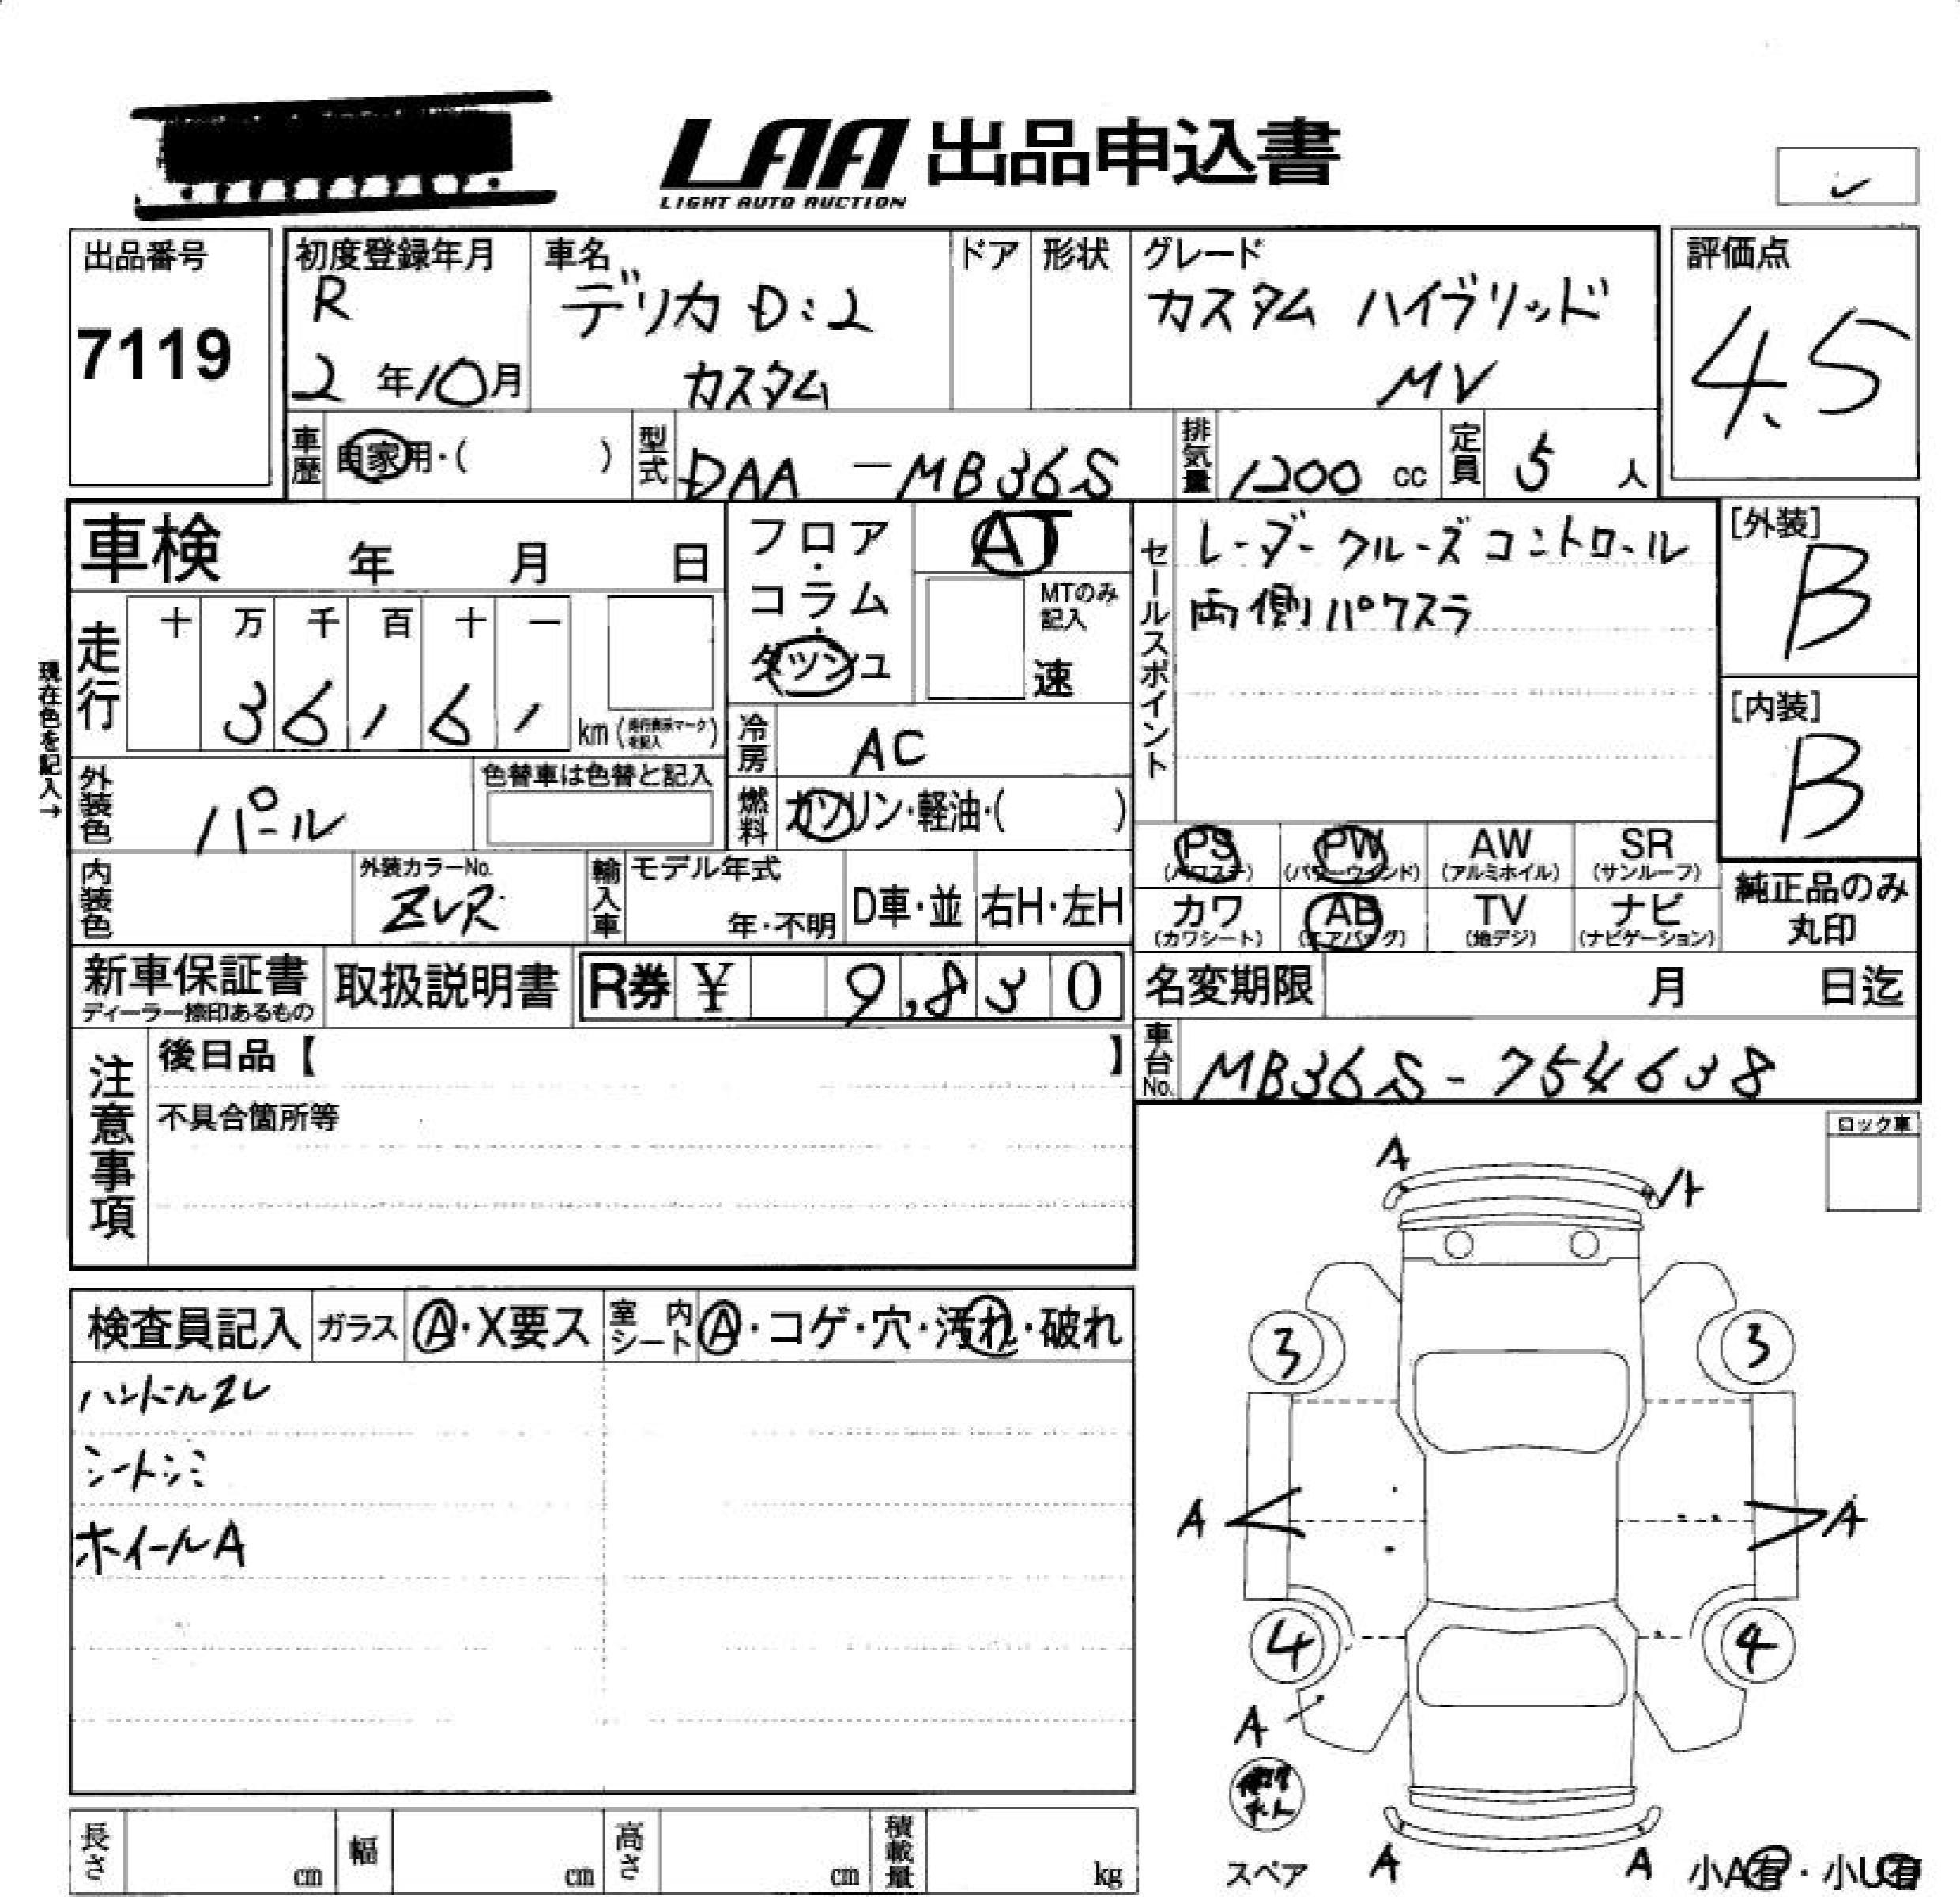 LAA 出品申込書
LIGHT AUTO AUCTION
出品番号
7119
初度登録年月
R
2 年 10 月
車名
デリカ D:2
カスタム
ドア
形状
グレード
カスタム ハイブリッド
MV
評価点
4.5
車歴
自家用・( )
型式
DAA-MB36S
排気量
1200 cc
定員
5 人
車検 年 月 日
フロア・コラム・ダッシュ
AT
MTのみ記入
速
セールスポイント
レーダークルーズコントロール
両側パワスラ
[外装]
B
[内装]
B
現在色を記入→
走行
十 万 千 百 十 一
3 6 1 6 1 km (走行表示マークを記入)
冷房
AC
外装色
パール
色替車は色替と記入
燃料
ガソリン・軽油・( )
内装色
外装カラーNo.
ZVR
輸入車
モデル年式
年・不明
D車・並
右H・左H
PS
(パワステ)
PW
(パワーウインド)
AW
(アルミホイル)
SR
(サンルーフ)
カワ
(カワシート)
AB
(エアバッグ)
TV
(地デジ)
ナビ
(ナビゲーション)
純正品のみ
丸印
新車保証書
ディーラー捺印あるもの
取扱説明書
R券 ¥ 9,830
名変期限 月 日迄
車台No.
MB36S-754638
注意事項
後日品【 】
不具合箇所等
ロック車
検査員記入
ガラス
A・X要ス
室内シート
A・コゲ・穴・汚れ・破れ
ハンドルスレ
シートシミ
ホイールA
A
3
3
A
A
4
4
A
スペア
A
A
小A有・小U有
長さ cm
幅 cm
高さ cm
積載量 kg